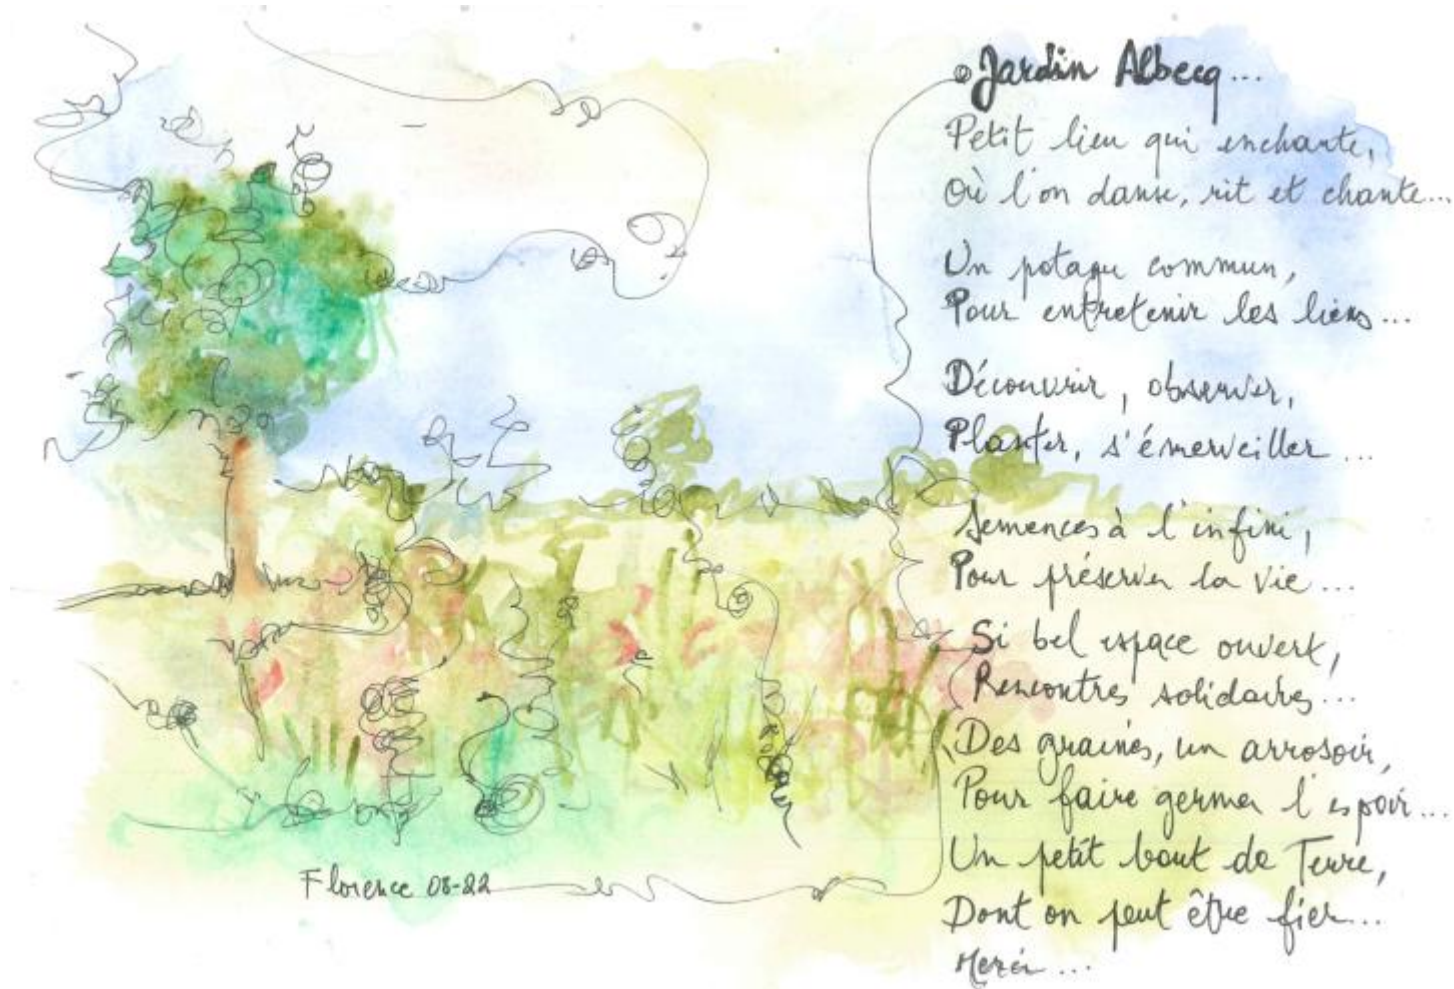 Jardin Albecq...
Petit lieu qui enchante,
Où l'on danse, rit et chante...
Un potager commun,
Pour entretenir les liens...
Découvrir, observer,
Planter, s'émerveiller...
Semences à l'infini,
Pour préserver la vie...
Si bel espace ouvert,
Rencontres solidaires...
Des graines, un arrosoir,
Pour faire germer l'espoir...
Un petit bout de Terre,
Dont on peut être fier...
Merci...
Florence 08-22